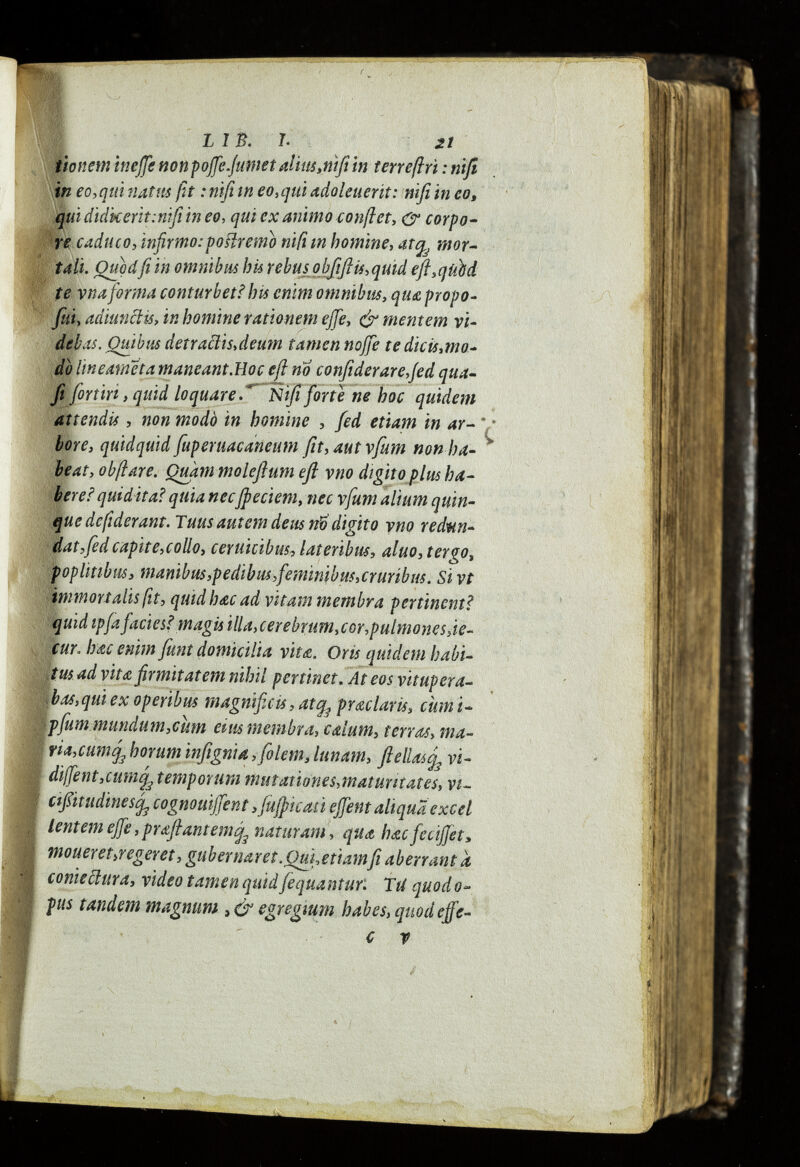 LIB. I. 21
tionem inesse non posse.sumet alius,nisi in terrestri : nisi
in eo,qui natus sit : nisi in eo,qui adoleuerit: nisi in eo,
qui didicerit:nisi in eo, qui ex animo constet, & corpo-
re caduco, infirmo: postremò nisi in homine, atq; mor-
tali. Quòd si in omnibus his rebus obsistis,quid est,quòd
te vna forma conturbet? his enim omnibus, quæ propo-
sui, adiunctis, in homine rationem esse, & mentem vi-
debas. Quibus detractis,deum tamen nosse te dicis,mo-
dò lineameta maneant.Hoc est nō considerare,sed qua-
si sortiri, quid loquare. Nisi fortè ne hoc quidem
attendis, non modò in homine, sed etiam in ar-
bore, quidquid superuacaneum sit, aut vsum non ha-
beat, obstare. Quàm molestum est vno digito plus ha-
bere? quid ita? quia nec speciem, nec vsum alium quin-
que desiderant. Tuus autem deus nō digito vno redun-
dat,sed capite,collo, ceruicibus, lateribus, aluo, tergo,
poplitibus, manibus,pedibus,feminibus,cruribus. Si vt
immortalis sit, quid hæc ad vitam membra pertinent?
quid ipsa facies? magis illa,cerebrum,cor,pulmones,ie-
cur. hæc enim sunt domicilia vitæ. Oris quidem habi-
tus ad vitæ firmitatem nihil pertinet. At eos vitupera-
bas,qui ex operibus magnificis, atq; præclaris, cùm i-
psum mundum,cùm eius membra, cælum, terras, ma-
ria,cumq; horum insignia, solem, lunam, stellasq; vi-
dissent,cumq; temporum mutationes,maturitates, vi-
cissitudinesq; cognouissent, suspicati essent aliquā excel
lentem esse, præstantemq; naturam, quæ hæc fecisset,
moueret,regeret, gubernaret.Qui,etiamsi aberrant à
coniectura, video tamen quid sequantur. Tu quod o-
pus tandem magnum, & egregium habes, quod effe-
C v